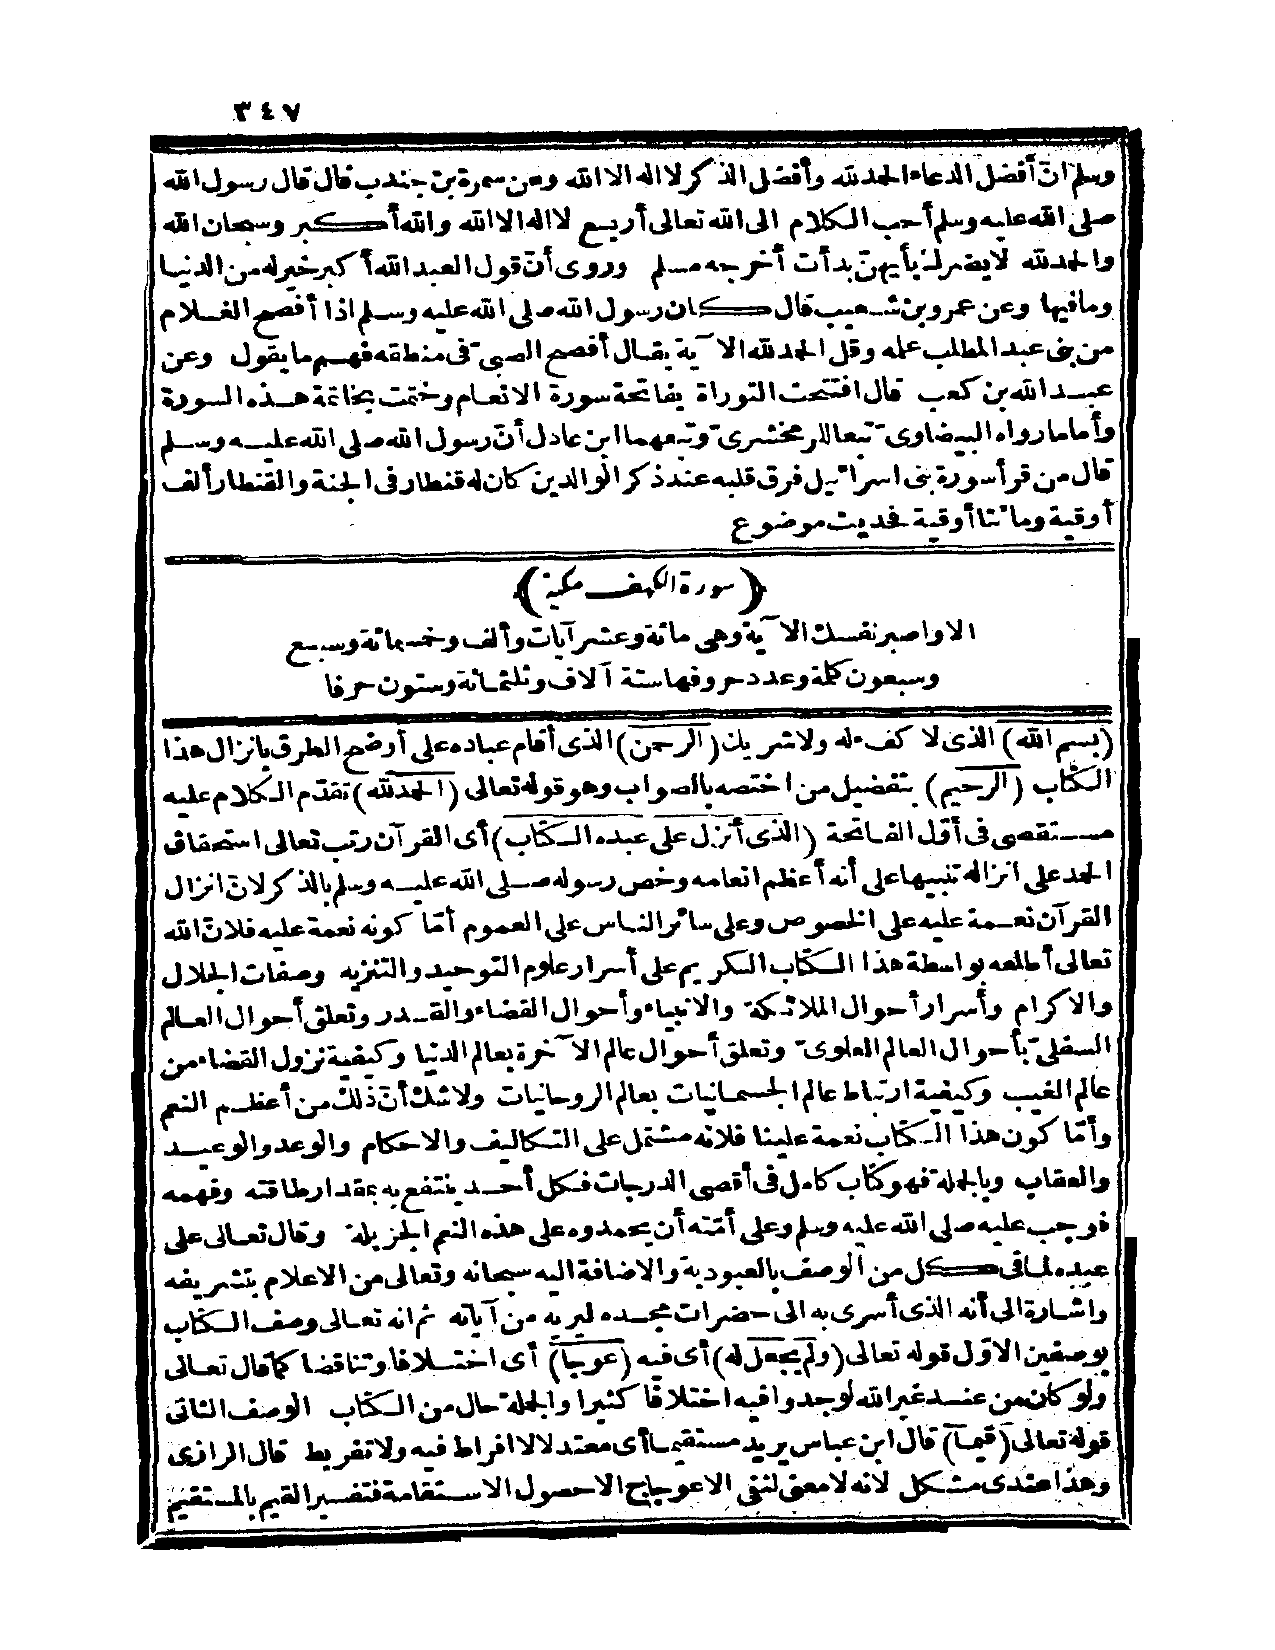 ٣٤٧
وسلم انّ أفضل الدعاء الحمدلله وأفضل الذكر لا اله الا الله وعن سمرة بن جندب قال قال رسول الله
صلى الله عليه وسلم أحب الكلام الى الله تعالى أربع لا اله الا الله والله أكبر وسبحان الله
والحمدلله لا يضرك بأيهنّ بدأت أخرجه مسلم وروى أنّ قول العبد الله أكبر خير له من الدنيا
وما فيها وعن عمرو بن شعيب قال كان رسول الله صلى الله عليه وسلم اذا أفصح الغلام
من بنى عبد المطلب علمه وقل الحمدلله الآية يقال أفصح الصبىّ فى منطقه فهم ما يقول وعن
عبد الله بن كعب قال افتتحت التوراة بفاتحة سورة الانعام وختمت بخاتمة هذه السورة
وأما ما رواه البيضاوىّ تبعا للزمخشرىّ وتبعهما ابن عادل أنّ رسول الله صلى الله عليه وسلم
قال من قرأ سورة بنى اسرائيل فرق قلبه عند ذكر الوالدين كان له قنطار فى الجنة والقنطار ألف
أوقية ومائتا أوقية فحديث موضوع
﴿ سورة الكهف مكية ﴾
الا واصبر نفسك الآية وهى مائة وعشر آيات وألف وخمسمائة وسبع
وسبعون كلمة وعدد حروفها ستة آلاف وثلثمائة وستون حرفا
(بسم الله) الذى لا كفء له ولا شريك (الرحمن) الذى أقام عباده على أوضح الطرق بانزال هذا
الكتاب (الرحيم) بتفضيل من اختصه بالصواب وهو قوله تعالى (الحمدلله) تقدّم الكلام عليه
مستقصى فى أوّل الفاتحة (الذى أنزل على عبده الكتاب) أى القرآن رتب تعالى استحقاق
الحمد على انزاله تنبيها على أنه أعظم انعامه وخص رسوله صلى الله عليه وسلم بالذكر لانّ انزال
القرآن نعمة عليه على الخصوص وعلى سائر الناس على العموم أمّا كونه نعمة عليه فلانّ الله
تعالى أطلعه بواسطة هذا الكتاب الكريم على أسرار علوم التوحيد والتنزيه وصفات الجلال
والاكرام وأسرار أحوال الملائكة والانبياء وأحوال القضاء والقدر وتعلق أحوال العالم
السفلىّ بأحوال العالم العلوىّ وتعلق أحوال عالم الآخرة بعالم الدنيا وكيفية نزول القضاء من
عالم الغيب وكيفية ارتباط عالم الجسمانيات بعالم الروحانيات ولا شك أنّ ذلك من أعظم النعم
وأمّا كون هذا الكتاب نعمة علينا فلانه مشتمل على التكاليف والاحكام والوعد والوعيد
والعقاب وبالجملة فهو كتاب كامل فى أقصى الدرجات فكل أحد ينتفع به بمقدار طاقته وفهمه
فوجب عليه صلى الله عليه وسلم وعلى أمّته أن يحمدوه على هذه النعم الجزيلة وقال تعالى على
عبده لما فى كل من الوصف بالعبودية والاضافة اليه سبحانه وتعالى من الاعلام بتشريفه
واشارة الى أنه الذى أسرى به الى حضرات مجده ليريه من آياته ثم انه تعالى وصف الكتاب
بوصفين الاوّل قوله تعالى (ولم يجعل له) أى فيه (عوجا) أى اختلافا وتناقضا كما قال تعالى
ولو كان من عند غير الله لوجدوا فيه اختلافا كثيرا والجملة حال من الكتاب الوصف الثانى
قوله تعالى (قيما) قال ابن عباس يريد مستقيما أى معتدلا لا افراط فيه ولا تفريط قال الرازى
وهذا عندى مشكل لانه لا معنى لنفى الاعوجاج الا حصول الاستقامة فتفسير القيم بالمستقيم